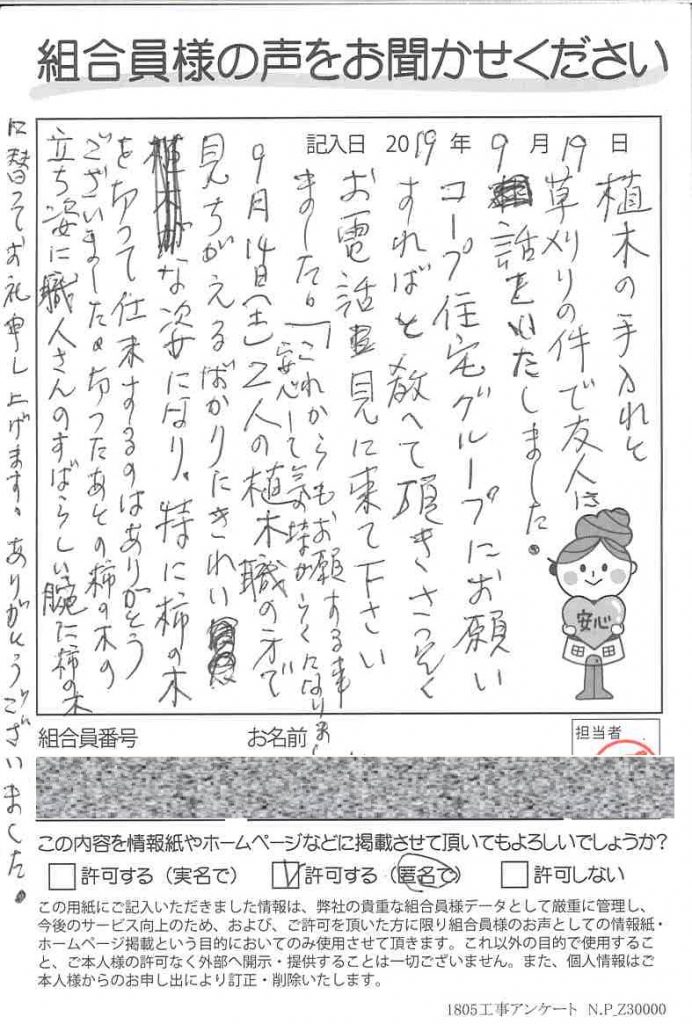 組合員様の声をお聞かせください
記入日 2019年 9月 19日
植木の手入れと
草刈りの件で友人に
話をいたしました。
コープ住宅グループにお願い
すればと教へて頂きさっそく
お電話 見に来て下さい
ました。「これからもお願する事
安心して気の持がらくになりまし
9月14日(土)2人の植木職の方で
見ちがえるばかりにきれい
な姿になり、特に柿の木
を切って仕末するのはありがとう
ございました。切ったあとの柿の木の
立ち姿に職人さんのすばらしい腕た柿の木
に替ってお礼申し上げます。ありがとうございました。
安心
組合員番号
お名前
担当者
この内容を情報紙やホームページなどに掲載させて頂いてもよろしいでしょうか?
許可する(実名で) 許可する(匿名で) 許可しない
この用紙にご記入いただきました情報は、弊社の貴重な組合員様データとして厳重に管理し、
今後のサービス向上のため、および、ご許可を頂いた方に限り組合員様のお声としての情報紙・
ホームページ掲載という目的においてのみ使用させて頂きます。これ以外の目的で使用するこ
と、ご本人様の許可なく外部へ開示・提供することは一切ございません。また、個人情報はご
本人様からのお申し出により訂正・削除いたします。
1805工事アンケート N.P_Z30000